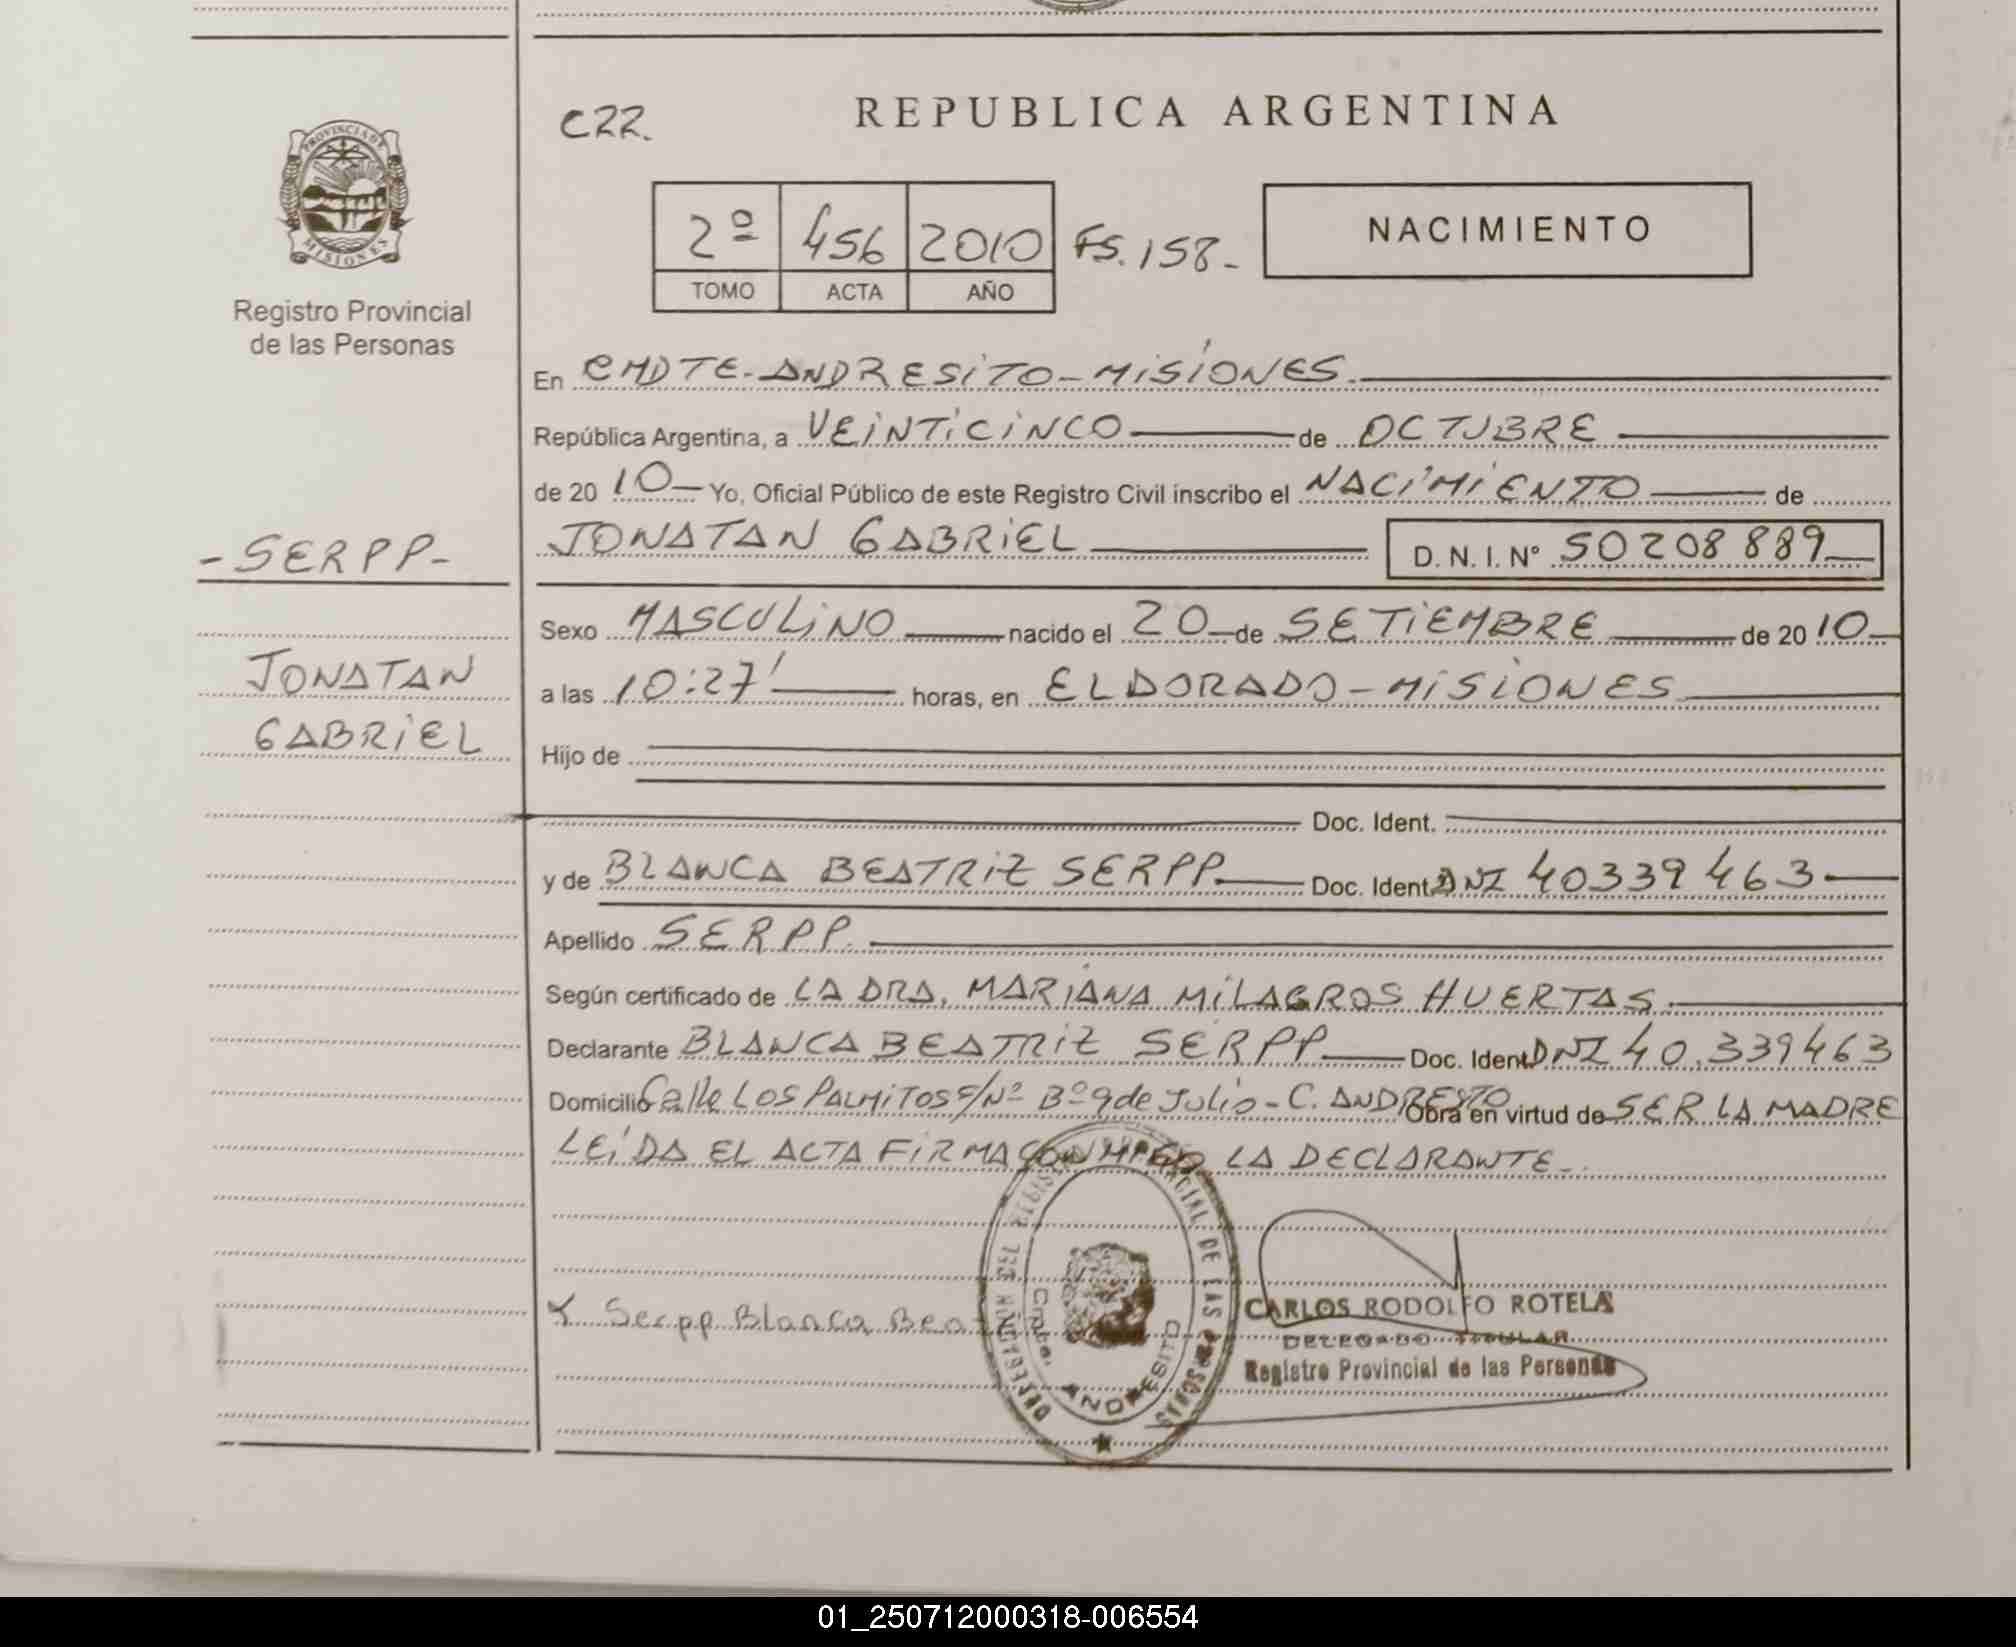 REPUBLICA ARGENTINA
C22.
PROVINCIA DE MISIONES
Registro Provincial
de las Personas
2º 456 2010 FS. 158.-
TOMO ACTA AÑO
NACIMIENTO
En CMDTE. ANDRESITO - MISIONES.
República Argentina, a VEINTICINCO de OCTUBRE
de 2010 Yo, Oficial Público de este Registro Civil inscribo el NACIMIENTO de
JONATAN GABRIEL D. N. I. Nº 50208889
- SERPP -
JONATAN
GABRIEL
Sexo MASCULINO nacido el 20 de SETIEMBRE de 2010
a las 10:27' horas, en ELDORADO - MISIONES
Hijo de
Doc. Ident.
y de BLANCA BEATRIZ SERPP. Doc. Ident. DNI 40339463
Apellido SERPP.
Según certificado de LA DRA. MARIANA MILAGROS HUERTAS.
Declarante BLANCA BEATRIZ SERPP Doc. Ident. DNI 40.339463
Domicilio Calle LOS PALMITOS S/Nº Bº 9 de Julio - C. ANDRESITO Obra en virtud de SER LA MADRE
LEÍDA EL ACTA FIRMA CONMIGO LA DECLARANTE.
X Serpp Blanca Bea
DELEGACIÓN DEL REGISTRO PROVINCIAL DE LAS PERSONAS
Cmdte. ANDRESITO
CARLOS RODOLFO ROTELA
DELEGADO TITULAR
Registro Provincial de las Personas
01_250712000318-006554